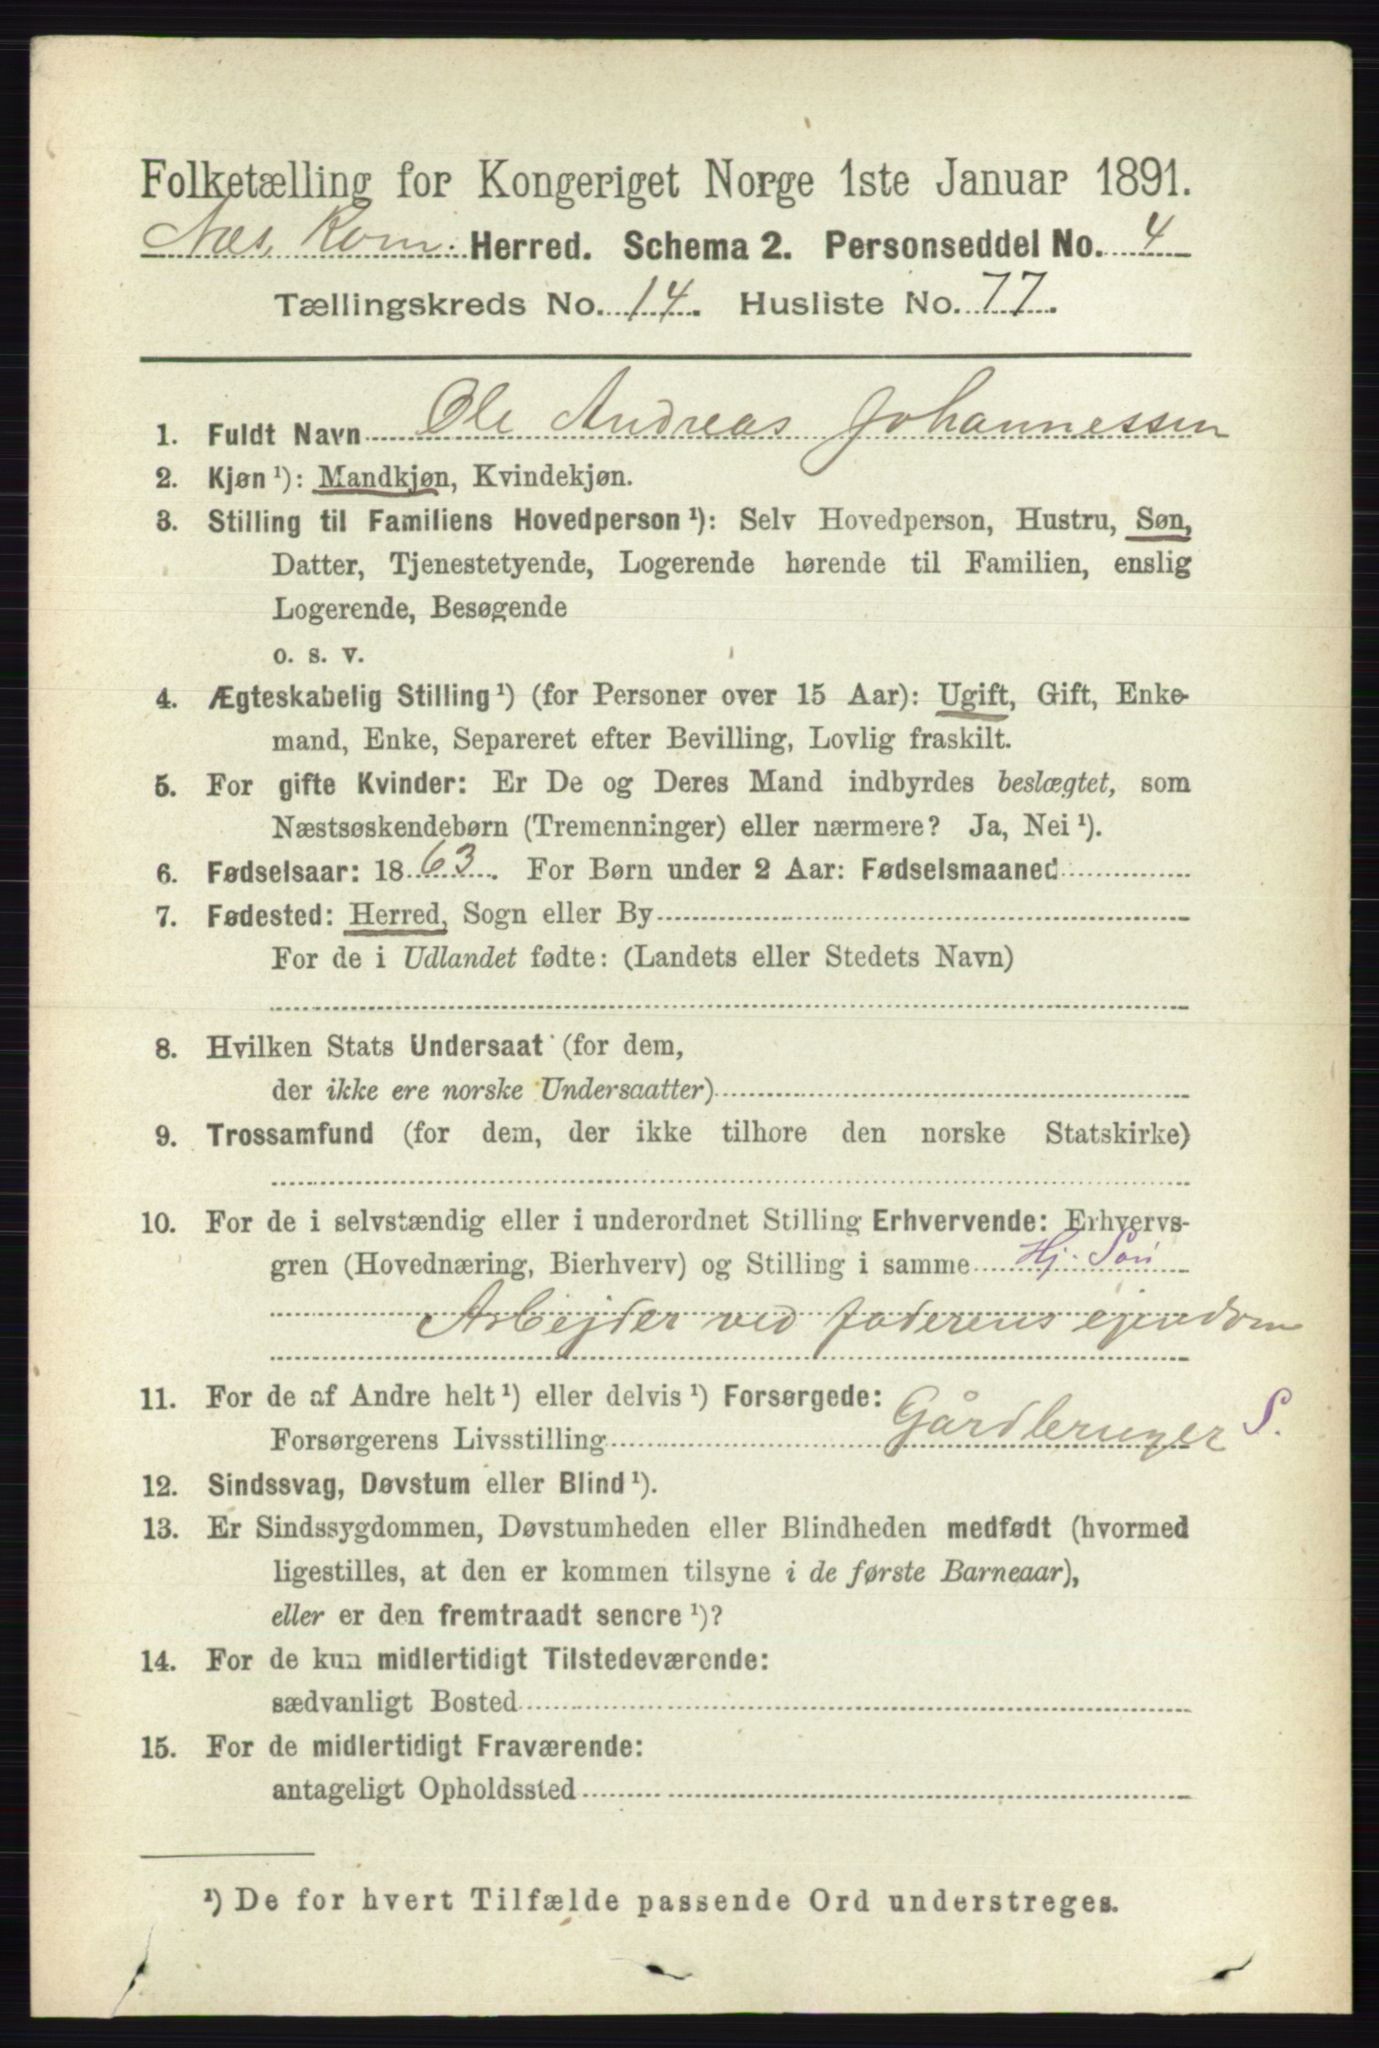 Folketælling for Kongeriget Norge 1ste Januar 1891.
Næs, Rom. Herred. Schema 2. Personseddel No. 4
Tællingskreds No. 14. Husliste No. 77.
1. Fuldt Navn Ole Andreas Johannessen
2. Kjøn ¹): Mandkjøn, Kvindekjøn.
3. Stilling til Familiens Hovedperson ¹): Selv Hovedperson, Hustru, Søn,
Datter, Tjenestetyende, Logerende hørende til Familien, enslig
Logerende, Besøgende
o. s. v.
4. Ægteskabelig Stilling ¹) (for Personer over 15 Aar): Ugift, Gift, Enke-
mand, Enke, Separeret efter Bevilling, Lovlig fraskilt.
5. For gifte Kvinder: Er De og Deres Mand indbyrdes beslægtet, som
Næstsøskendebørn (Tremenninger) eller nærmere? Ja, Nei ¹).
6. Fødselsaar: 1863. For Børn under 2 Aar: Fødselsmaaned
7. Fødested: Herred, Sogn eller By
For de i Udlandet fødte: (Landets eller Stedets Navn)
8. Hvilken Stats Undersaat (for dem,
der ikke ere norske Undersaatter)
9. Trossamfund (for dem, der ikke tilhøre den norske Statskirke)
10. For de i selvstændig eller i underordnet Stilling Erhvervende: Erhvervs-
gren (Hovednæring, Bierhverv) og Stilling i samme Hj. Søn
Arbejder ved faderens ejendom
11. For de af Andre helt ¹) eller delvis ¹) Forsørgede:
Forsørgerens Livsstilling Gårdbruger S.
12. Sindssvag, Døvstum eller Blind ¹).
13. Er Sindssygdommen, Døvstumheden eller Blindheden medfødt (hvormed
ligestilles, at den er kommen tilsyne i de første Barneaar),
eller er den fremtraadt senere ¹)?
14. For de kun midlertidigt Tilstedeværende:
sædvanligt Bosted
15. For de midlertidigt Fraværende:
antageligt Opholdssted
¹) De for hvert Tilfælde passende Ord understreges.